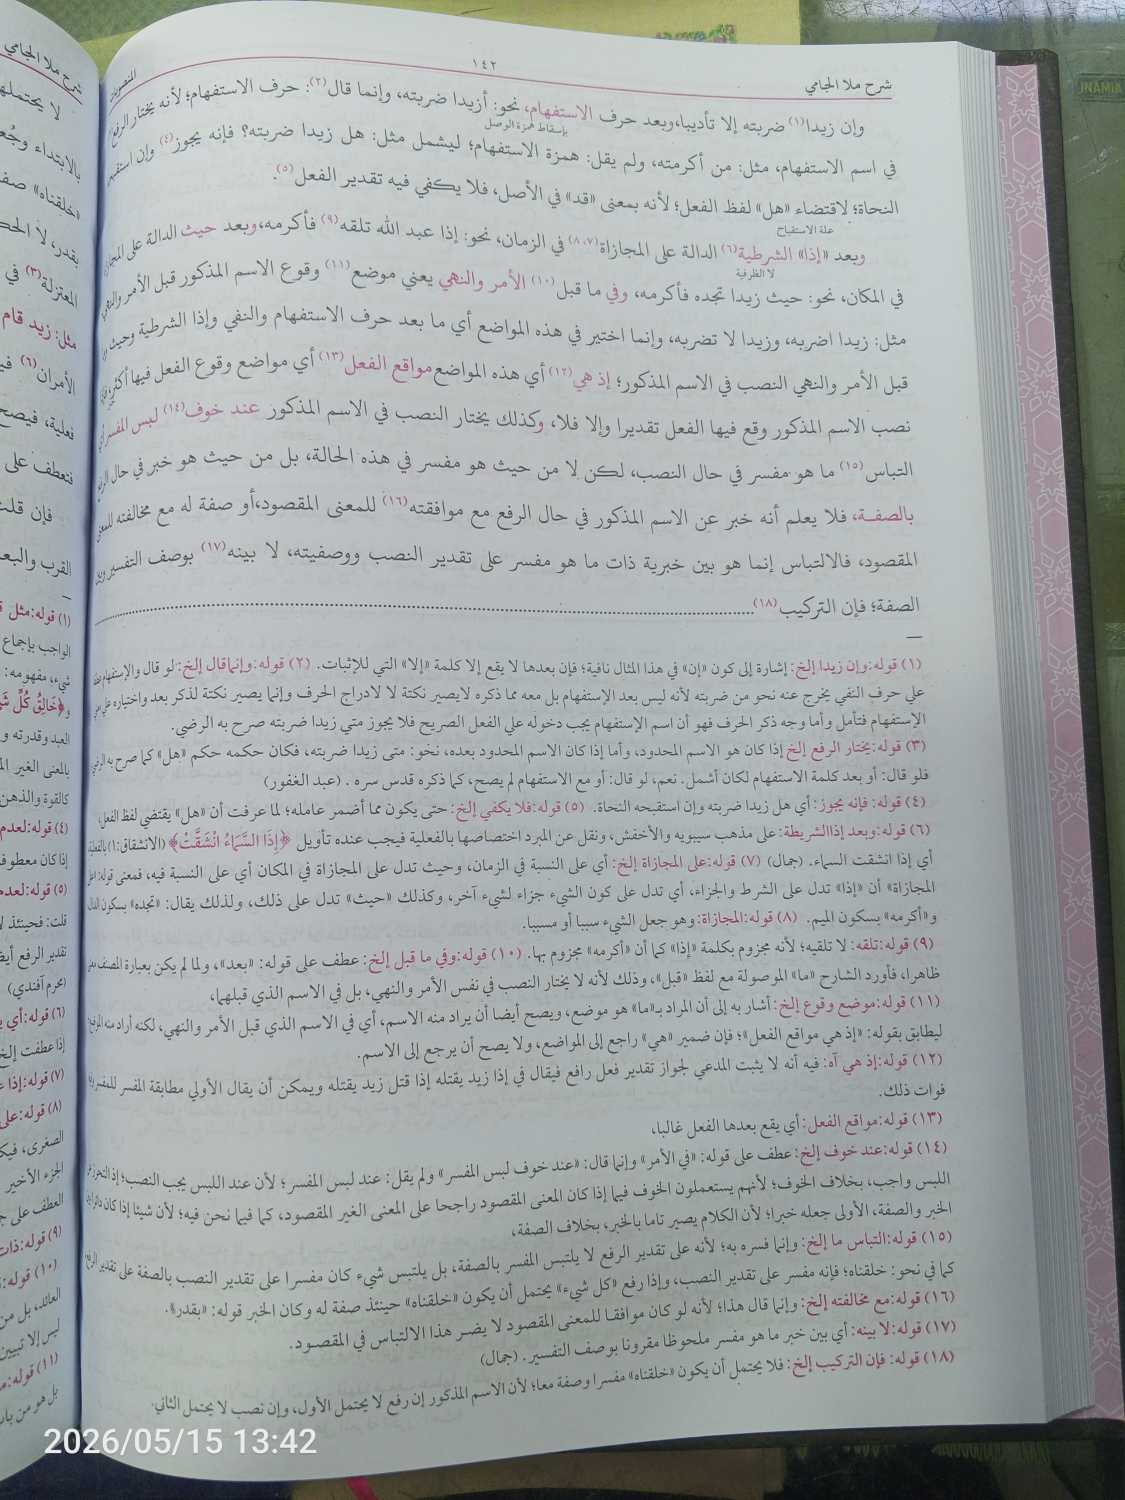 شرح ملا الجامي
١٤٢
المنصوبات
وإن زيدا(١) ضربته إلا تأديبا،وبعد حرف الاستفهام، نحو: أزيدا ضربته، وإنما قال(٢): حرف الاستفهام؛ لأنه يختار الرفع
بإسقاط همزة الوصل
في اسم الاستفهام، مثل: من أكرمته، ولم يقل: همزة الاستفهام؛ ليشمل مثل: هل زيدا ضربته؟ فإنه يجوز(٤) وإن
النحاة؛ لاقتضاء «هل» لفظ الفعل؛ لأنه بمعنى «قد» في الأصل، فلا يكفي فيه تقدير الفعل(٥).
علة الاستقباح
وبعد «إذا» الشرطية(٦) الدالة على المجازاة(٨،٧) في الزمان، نحو: إذا عبد الله تلقه(٩) فأكرمه،وبعد حيث الدالة على
لا الظرفية
في المكان، نحو: حيث زيدا تجده فأكرمه، وفي ما قبل(١٠) الأمر والنهي يعني موضع(١١) وقوع الاسم المذكور قبل الأمر
مثل: زيدا اضربه، وزيدا لا تضربه، وإنما اختير في هذه المواضع أي ما بعد حرف الاستفهام والنفي وإذا الشرطية وحيث
قبل الأمر والنهي النصب في الاسم المذكور؛ إذ هي(١٢) أي هذه المواضع مواقع الفعل(١٣) أي مواضع وقوع الفعل فيها أكثر،
نصب الاسم المذكور وقع فيها الفعل تقديرا وإلا فلا، وكذلك يختار النصب في الاسم المذكور عند خوف(١٤) لبس المفسر
التباس(١٥) ما هو مفسر في حال النصب، لكن لا من حيث هو مفسر في هذه الحالة، بل من حيث هو خبر في حال
بالصفة، فلا يعلم أنه خبر عن الاسم المذكور في حال الرفع مع موافقته(١٦) للمعنى المقصود،أو صفة له مع مخالفته
المقصود، فالالتباس إنما هو بين خبرية ذات ما هو مفسر على تقدير النصب ووصفيته، لا بينه(١٧) بوصف التفسير
الصفة؛ فإن التركيب(١٨)
(١) قوله:وإن زيدا إلخ: إشارة إلى كون «إن» في هذا المثال نافية؛ فإن بعدها لا يقع إلا كلمة «إلا» التي للإثبات. (٢) قوله:وإنماقال إلخ:لو قال والإستفهام
علي حرف النفي يخرج عنه نحو من ضربته لأنه ليس بعد الإستفهام بل معه مما ذكره لايصير نكتة لا لادراج الحرف وإنما يصير نكتة لذكر بعد واختياره علي
الإستفهام فتأمل وأما وجه ذكر الحرف فهو أن اسم الإستفهام يجب دخوله علي الفعل الصريح فلا يجوز متي زيدا ضربته صرح به الرضي.
(٣) قوله:يختار الرفع إلخ إذا كان هو الاسم المحدود، وأما إذا كان الاسم المحدود بعده، نحو: متى زيدا ضربته، فكان حكمه حكم «هل» كما صرح به
فلو قال: أو بعد كلمة الاستفهام لكان أشمل. نعم، لو قال: أو مع الاستفهام لم يصح، كما ذكره قدس سره . (عبد الغفور)
(٤) قوله: فإنه يجوز: أي هل زيدا ضربته وإن استقبحه النحاة. (٥) قوله:فلا يكفي إلخ: حتى يكون مما أضمر عامله؛ لما عرفت أن «هل» يقتضي لفظ الفعل،
(٦) قوله:وبعد إذاالشريطة: على مذهب سيبويه والأخفش، ونقل عن المبرد اختصاصها بالفعلية فيجب عنده تأويل ﴿إِذَا السَّمَاءُ انْشَقَّتْ﴾ (الانشقاق:١)
أي إذا انشقت السماء. (جمال) (٧) قوله:على المجازاة إلخ: أي على النسبة في الزمان، وحيث تدل على المجازاة في المكان أي على النسبة فيه، فمعنى قوله:
المجازاة» أن «إذا» تدل على الشرط والجزاء، أي تدل على كون الشيء جزاء لشيء آخر، وكذلك «حيث» تدل على ذلك، ولذلك يقال: «تجده» بسكون
و«أكرمه» بسكون الميم. (٨) قوله:المجازاة: وهو جعل الشيء سببا أو مسببا.
(٩) قوله:تلقه: لا تلقيه؛ لأنه مجزوم بكلمة «إذا» كما أن «أكرمه» مجزوم بها. (١٠) قوله:وفي ما قبل إلخ: عطف على قوله: «بعد»، ولما لم يكن بعبارة المصنف
ظاهرا، فأورد الشارح «ما» الموصولة مع لفظ «قبل»، وذلك لأنه لا يختار النصب في نفس الأمر والنهي، بل في الاسم الذي قبلهما،
(١١) قوله:موضع وقوع إلخ: أشار به إلى أن المراد بـ«ما» هو موضع، ويصح أيضا أن يراد منه الاسم، أي في الاسم الذي قبل الأمر والنهي، لكنه أراد منه
ليطابق بقوله: «إذ هي مواقع الفعل»؛ فإن ضمير «هي» راجع إلى المواضع، ولا يصح أن يرجع إلى الاسم.
(١٢) قوله:إذ هي آه: فيه أنه لا يثبت المدعي لجواز تقدير فعل رافع فيقال في إذا زيد يقتله إذا قتل زيد يقتله ويمكن أن يقال الأولي مطابقة المفسر للمفسر
فوات ذلك.
(١٣) قوله:مواقع الفعل: أي يقع بعدها الفعل غالبا،
(١٤) قوله:عند خوف إلخ: عطف على قوله: «في الأمر» وإنما قال: «عند خوف لبس المفسر» ولم يقل: عند لبس المفسر؛ لأن عند اللبس يجب النصب؛
اللبس واجب، بخلاف الخوف؛ لأنهم يستعملون الخوف فيما إذا كان المعنى المقصود راجحا على المعنى الغير المقصود، كما فيما نحن فيه؛ لأن شيئا إذا كان
الخبر والصفة، الأولى جعله خبرا؛ لأن الكلام يصير تاما بالخبر، بخلاف الصفة،
(١٥) قوله:التباس ما إلخ: وإنما فسره به؛ لأنه على تقدير الرفع لا يلتبس المفسر بالصفة، بل يلتبس شيء كان مفسرا على تقدير النصب بالصفة على تقدير الرفع
كما في نحو: خلقناه؛ فإنه مفسر على تقدير النصب، وإذا رفع «كل شيء» يحتمل أن يكون «خلقناه» حينئذ صفة له وكان الخبر قوله: «بقدر».
(١٦) قوله:مع مخالفته إلخ: وإنما قال هذا؛ لأنه لو كان موافقا للمعنى المقصود لا يضر هذا الالتباس في المقصود.
(١٧) قوله:لا بينه: أي بين خبر ما هو مفسر ملحوظا مقرونا بوصف التفسير. (جمال)
(١٨) قوله: فإن التركيب إلخ: فلا يحتمل أن يكون «خلقناه» مفسرا وصفة معا؛ لأن الاسم المذكور إن رفع لا يحتمل الأول، وإن نصب لا يحتمل الثاني.
شرح ملا الجامي
لا يحتملها
بالابتداء
«خلقناه»
بقدر،
المعتزلة(٣) في
مثل: زيد قام
الأمران(٦)
فعلية، فيصح
فتعطف على
فإن قلت
القرب والبعد
(١) قوله:مثل
الواجب بإجماع
شيء، مفهومه:
العبد وقدرته
بالمعنى الغير
كالقوة والذهن
(٤) قوله:لعدم
إذا كان معطوفا
(٥) قوله:لعدم
قلت: فحينئذ
تقدير الرفع
(محرم أفندي)
(٦) قوله:أي
إذا عطفت
(٧) قوله:إذا
(٨) قوله:على
الصغرى،
الجزء الأخير
العطف على
(٩) قوله:ذات
(١٠) قوله:
العائد، بل من
ليس إلا تبيين
(١١) قوله:
بل هو من باب
2026/05/15 13:42